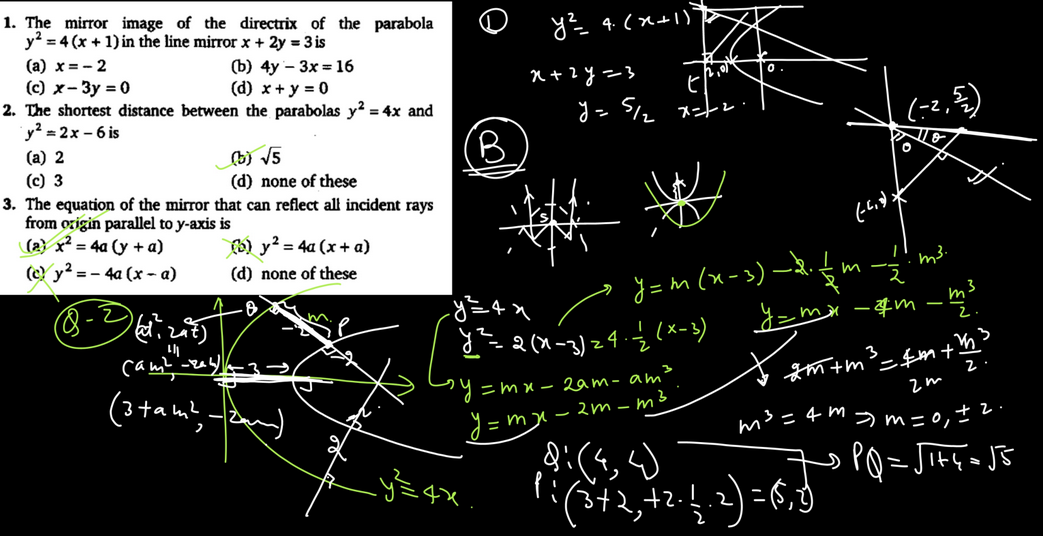 1. The mirror image of the directrix of the parabola
y² = 4(x + 1) in the line mirror x + 2y = 3 is
(a) x = − 2
(b) 4y − 3x = 16
(c) x − 3y = 0
(d) x + y = 0
2. The shortest distance between the parabolas y² = 4x and
y² = 2x − 6 is
(a) 2
(b) √5
(c) 3
(d) none of these
3. The equation of the mirror that can reflect all incident rays
from origin parallel to y-axis is
(a) x² = 4a (y + a)
(b) y² = 4a (x + a)
(c) y² = − 4a (x − a)
(d) none of these
①
y² = 4.(x+1)
x + 2y = 3
y = 5/2 x = −2.
O
(−2, 5/2)
θ
θ
B
S
Q-2
m
P
3
2
(3+am², −2am)
y² = 4x
y² = 4x
y² = 2(x−3) = 4·½(x−3)
y = mx − 2am − am³.
y = mx − 2m − m³
y = m(x−3) − 2·½m − ½·m³
y = mx − 4m − m³/2.
2m + m³ = 4m + m³/2
m³ = 4m ⇒ m = 0, ±2.
Q: (4, 4)
P: (3+2, +2·½·2) = (5, 2)
→ PQ = √1+4 = √5